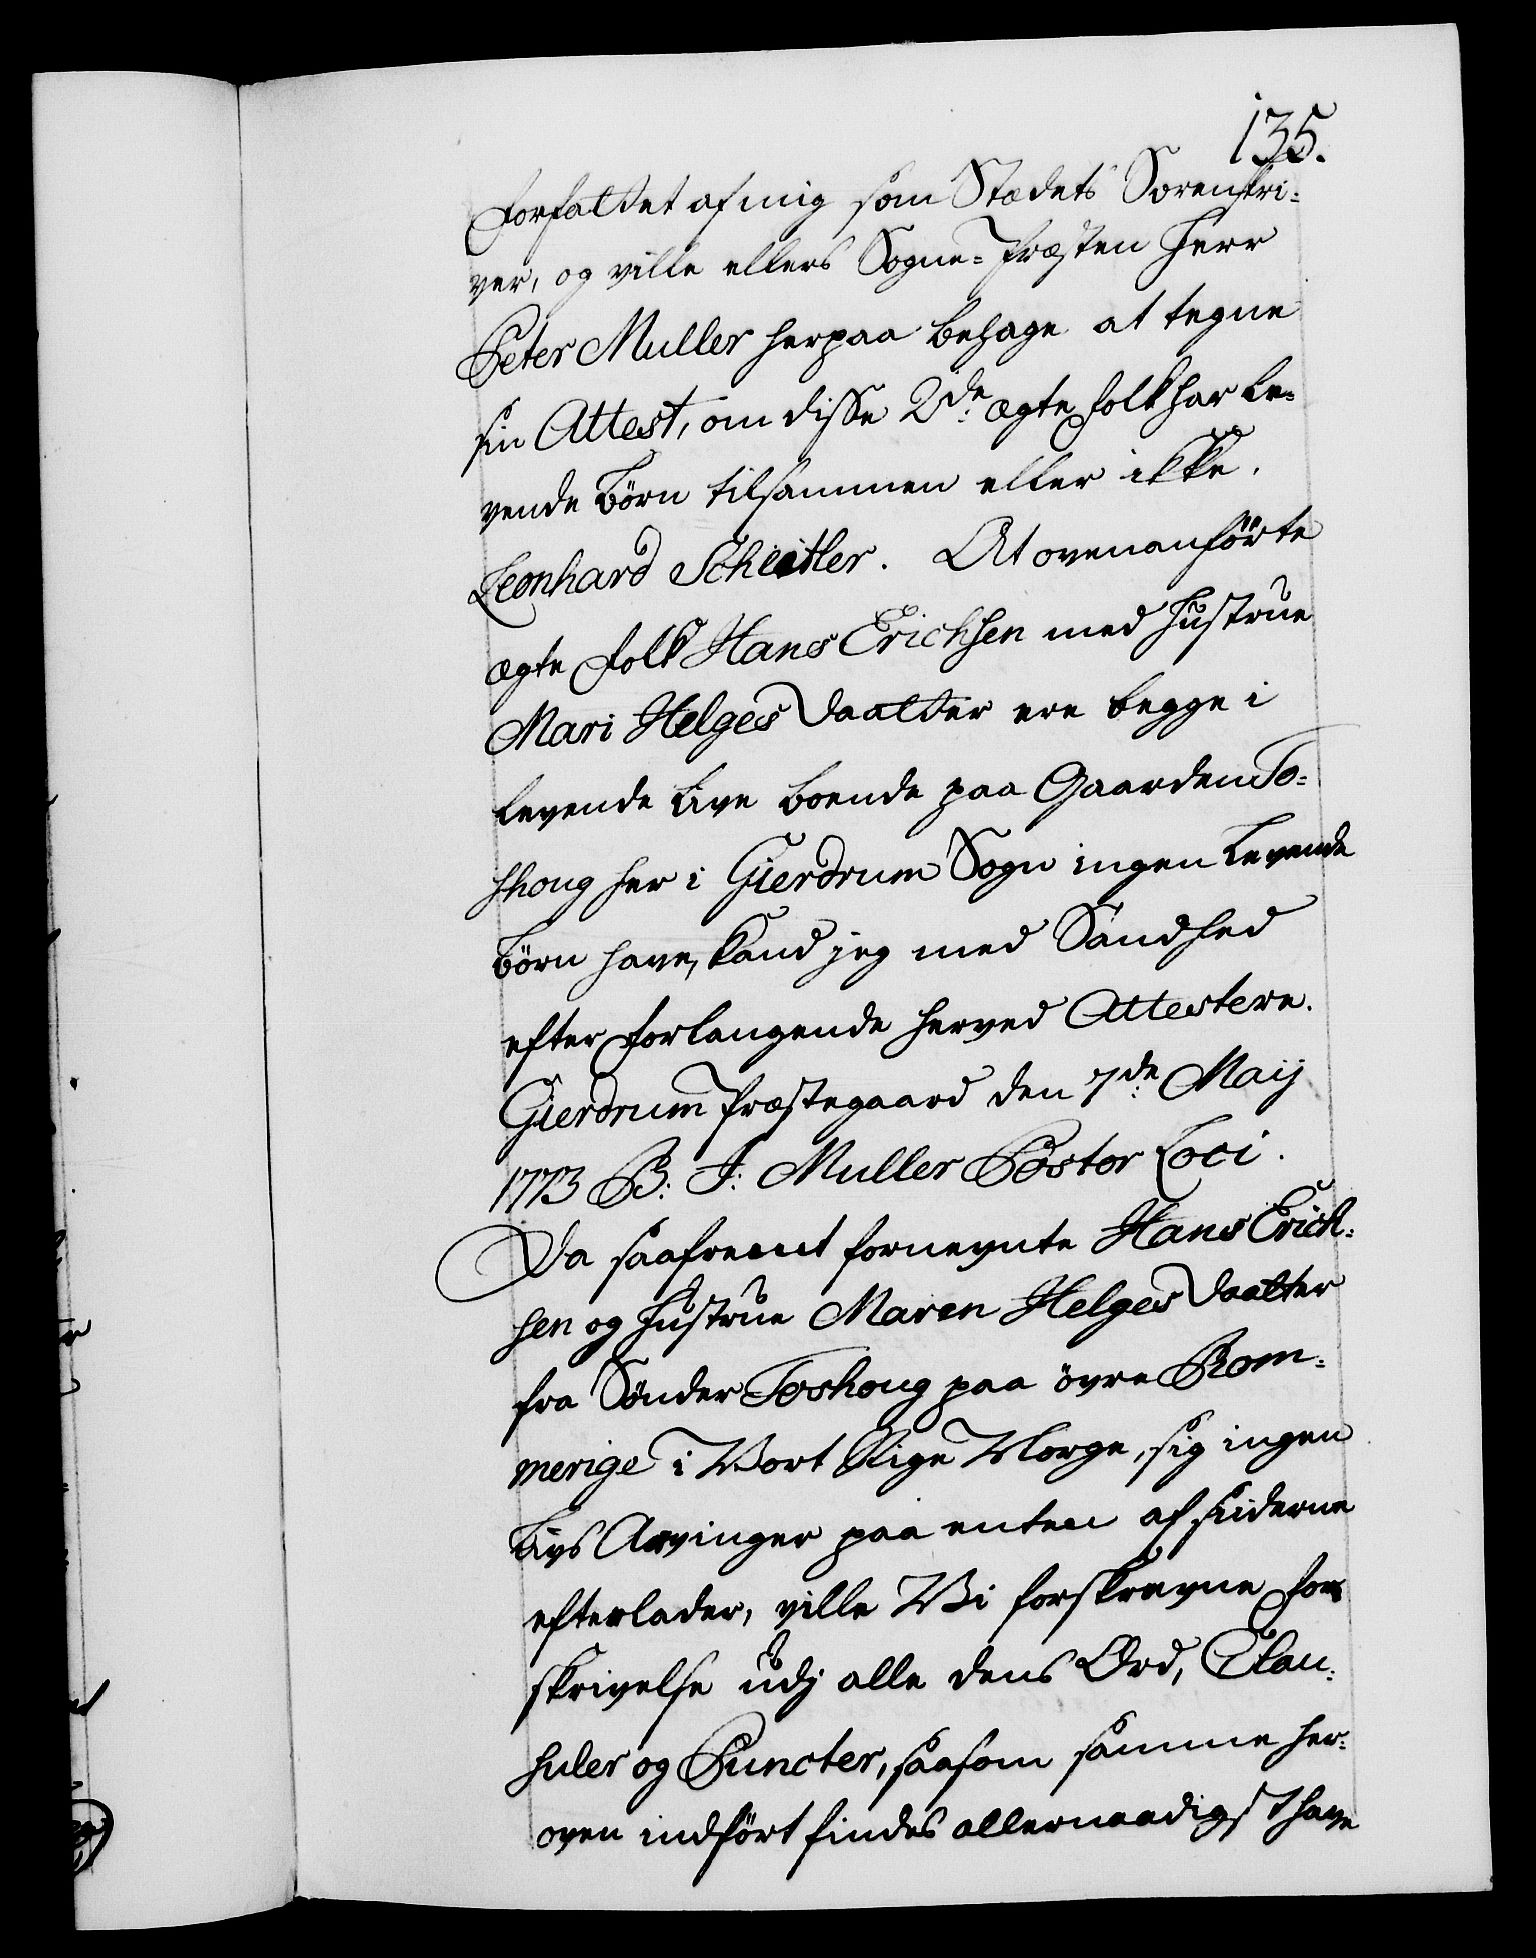 135.
forfattet af mig som Stædets Sorenskri-
ver, og ville ellers Sogne-Præsten Herr
Peter Muller herpaa behage at tegne
sin Attest, om disse 2de: ægte folk har le-
vende Börn tilsammen eller ikke.
Leonhard Scheitler. At ovenanförte
ægte folk Hans Erichsen med Hustrue
Mari Helges Daatter ere begge i
levende Live boende paa Gaarden To-
shoug her i Gierdrum Sogn ingen levende
Börn have, kand jeg med Sandhed
efter forlangende herved Attestere.
Gierdrum Præstegaard den 7de: Maij
1773 P: J: Muller Pastor Loci.
Da saafremt fornevnte Hans Erich-
sen og Hustrue Maren Helges Daatter
fra Sönder Toshoug paa övre Rom-
merige i Vort Rige Norge, sig ingen
Livs Arvinger paa enten af Siderne
efterlader, ville Vi forskrevne For
skrivelse udj alle dens Ord, Clau-
suler og Puncter, saasom samme her-
oven indfört findes allernaadigst have